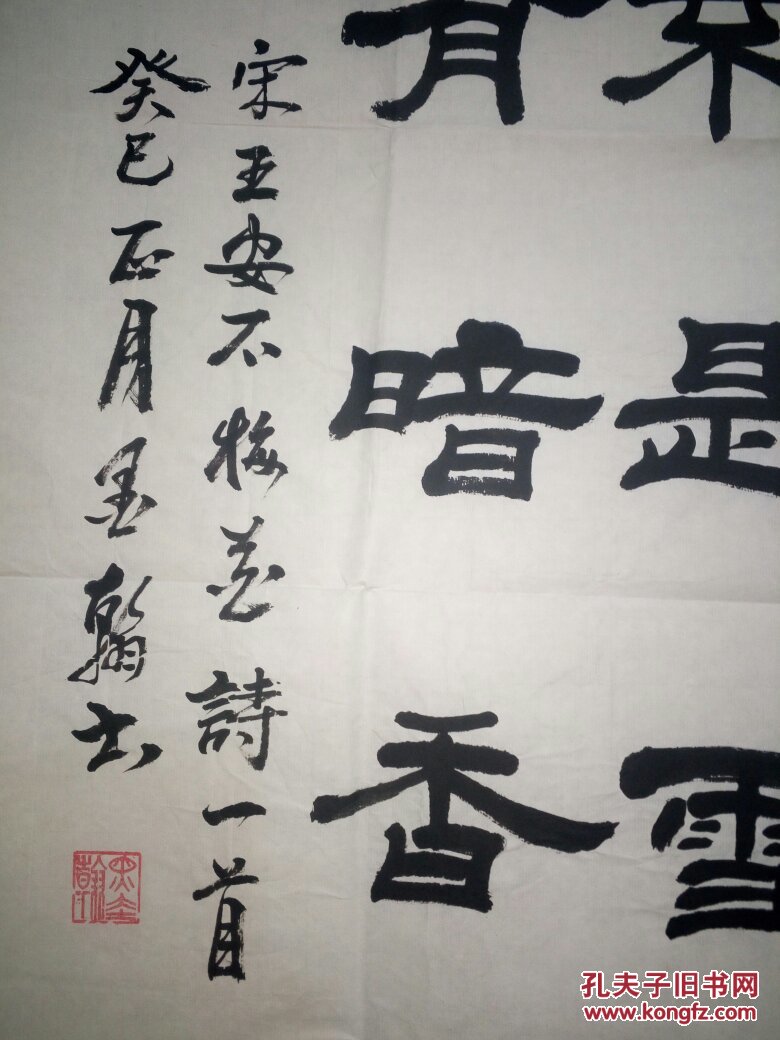 不是雪
有暗香
宋王安石梅花詩一首
癸巳正月墨翰书
孔夫子旧书网
www.kongfz.com